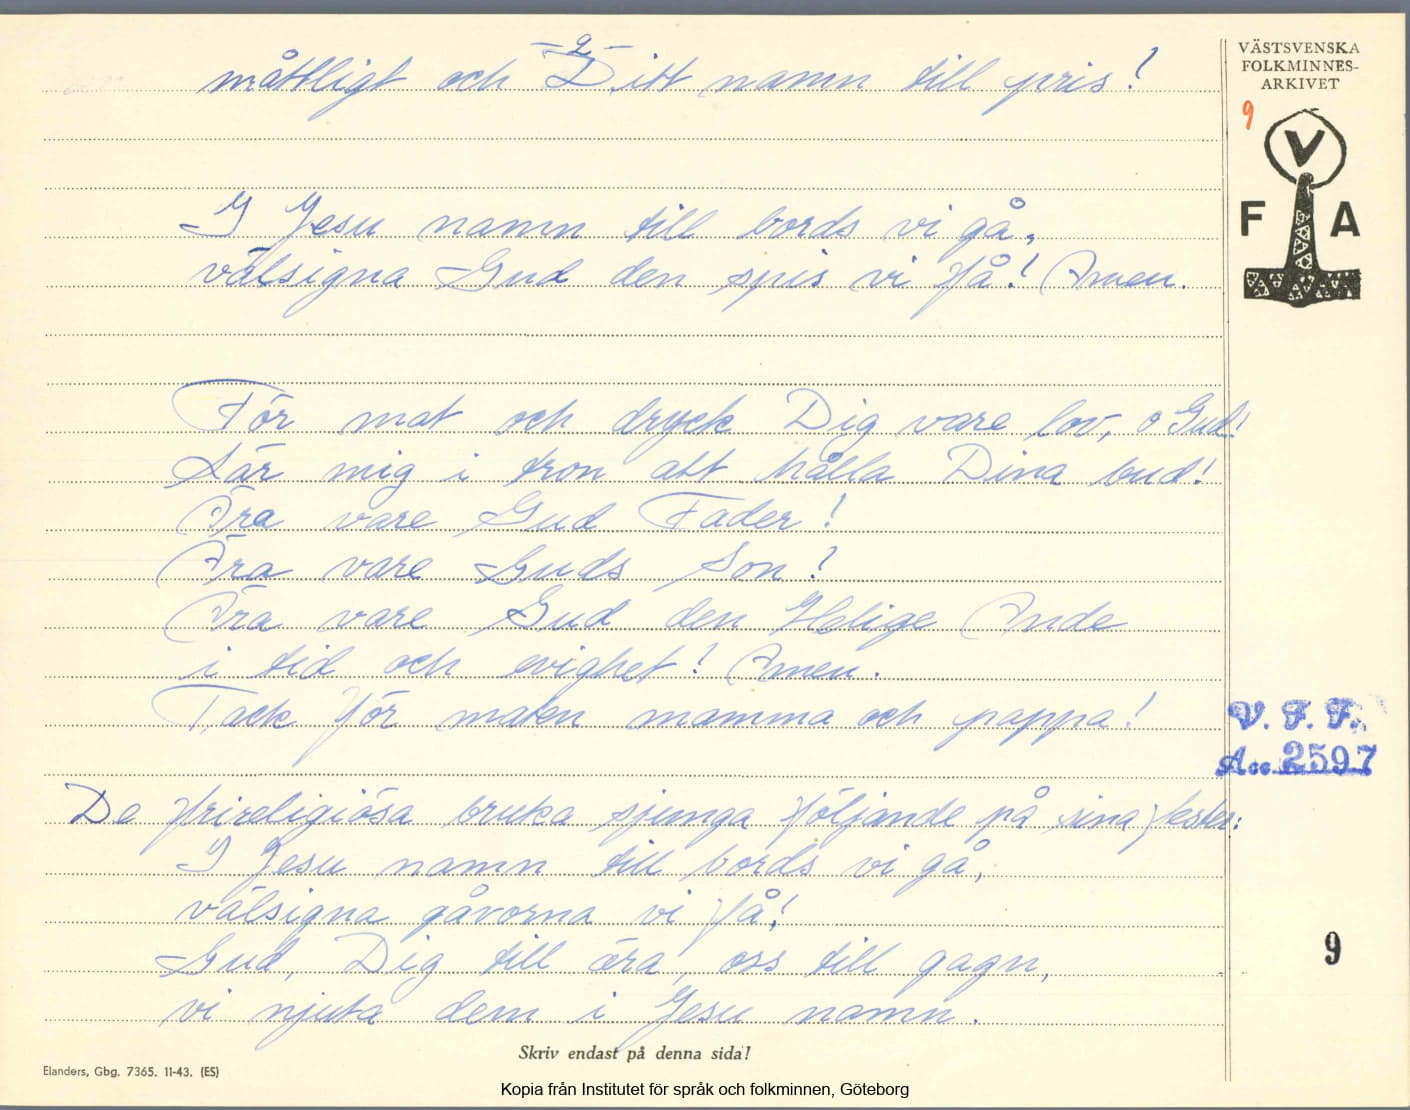 -2-
måttligt och Ditt namn till pris!
I Jesu namn till bords vi gå,
välsigna Gud den spis vi få! Amen.
För mat och dryck Dig vare lov, o Gud!
Lär mig i tron att hålla Dina bud!
Ära vare Gud Fader!
Ära vare Guds Son!
Ära vare Gud den Helige Ande
i tid och evighet! Amen.
Tack för maten mamma och pappa!
De frireligiösa bruka sjunga följande på sina fester:
I Jesu namn till bords vi gå,
välsigna gåvorna vi få!
Gud, Dig till ära, oss till gagn,
vi njuta dem i Jesu namn.
Skriv endast på denna sida!
Elanders, Gbg. 7365. 11-43. (ES)
VÄSTSVENSKA
FOLKMINNES-
ARKIVET
9
V
F A
V. F. F.
Acc. 2597
9
Kopia från Institutet för språk och folkminnen, Göteborg